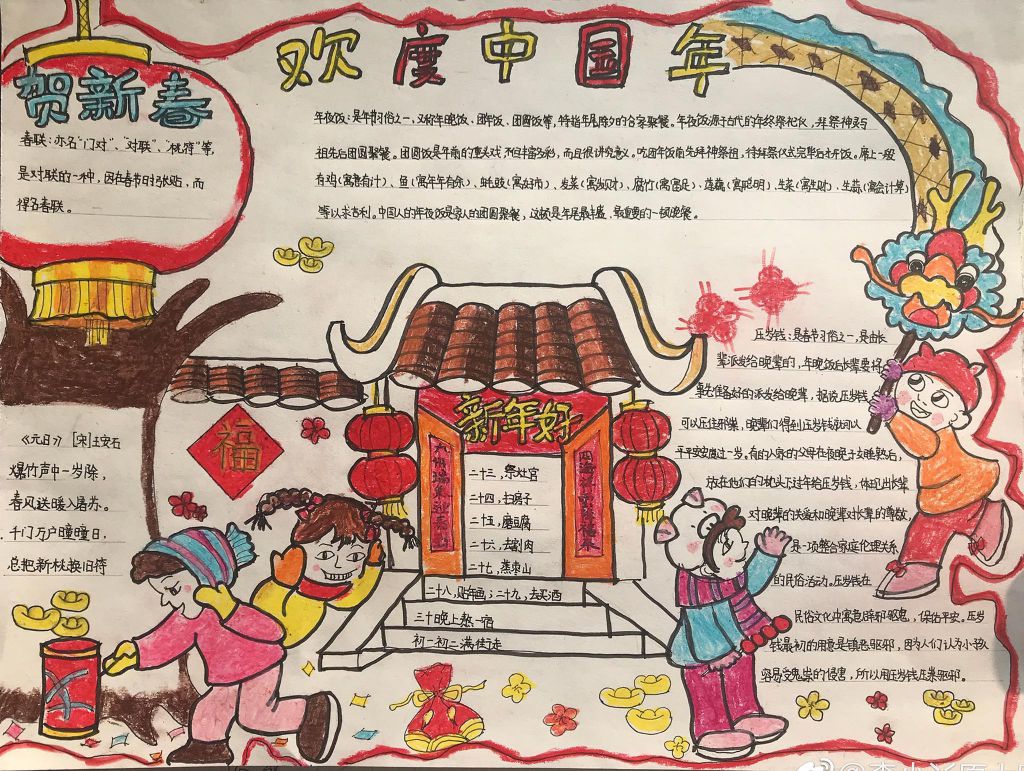 欢度中国年
贺新春
春联：亦名“门对”、“对联”、“桃符”等，
是对联的一种，因在春节时张贴，而
得名春联。
年夜饭：是年节习俗之一，又称年晚饭、团年饭、团圆饭等，特指年尾除夕的合家聚餐。年夜饭源于古代的年终祭祀仪，拜祭神灵与
祖先后团圆聚餐。团圆饭是年前的重头戏，不但丰富多彩，而且很讲究意义。吃团年饭前先拜神祭祖，待拜祭仪式完毕后才开饭。席上一般
有鸡（寓意有计）、鱼（寓年年有余）、蚝豉（寓好市）、发菜（寓发财）、腐竹（寓富足）、莲藕（寓聪明）、生菜（寓生财）、生蒜（寓会计算）
等以求吉利。中国人的年夜饭是家人的团圆聚餐，这顿是年尾最丰盛、最重要的一顿晚餐。
《元日》 [宋]王安石
爆竹声中一岁除，
春风送暖入屠苏。
千门万户曈曈日，
总把新桃换旧符
福
新年好
二十三，祭灶官
二十四，扫房子
二十五，磨豆腐
二十六，去割肉
二十七，蒸枣山
二十八，贴年画；二十九，去买酒
三十晚上熬一宿
初一初二满街走
压岁钱：是春节习俗之一，是由长
辈派发给晚辈的，年晚饭后长辈要将
事先准备好的派发给晚辈，据说压岁钱
可以压住邪祟，晚辈们得到压岁钱就可以
平平安安度过一岁。有的人家的父母在夜晚子女睡熟后，
放在他们的枕头下过年给压岁钱，体现出长辈
对晚辈的关爱和晚辈对长辈的尊敬，
是一项整合家庭伦理关系
的民俗活动。压岁钱在
民俗文化中寓意辟邪驱鬼，保佑平安。压岁
钱最初的用意是镇恶驱邪，因为人们认为小孩
容易受鬼祟的侵害，所以用压岁钱压祟驱邪。